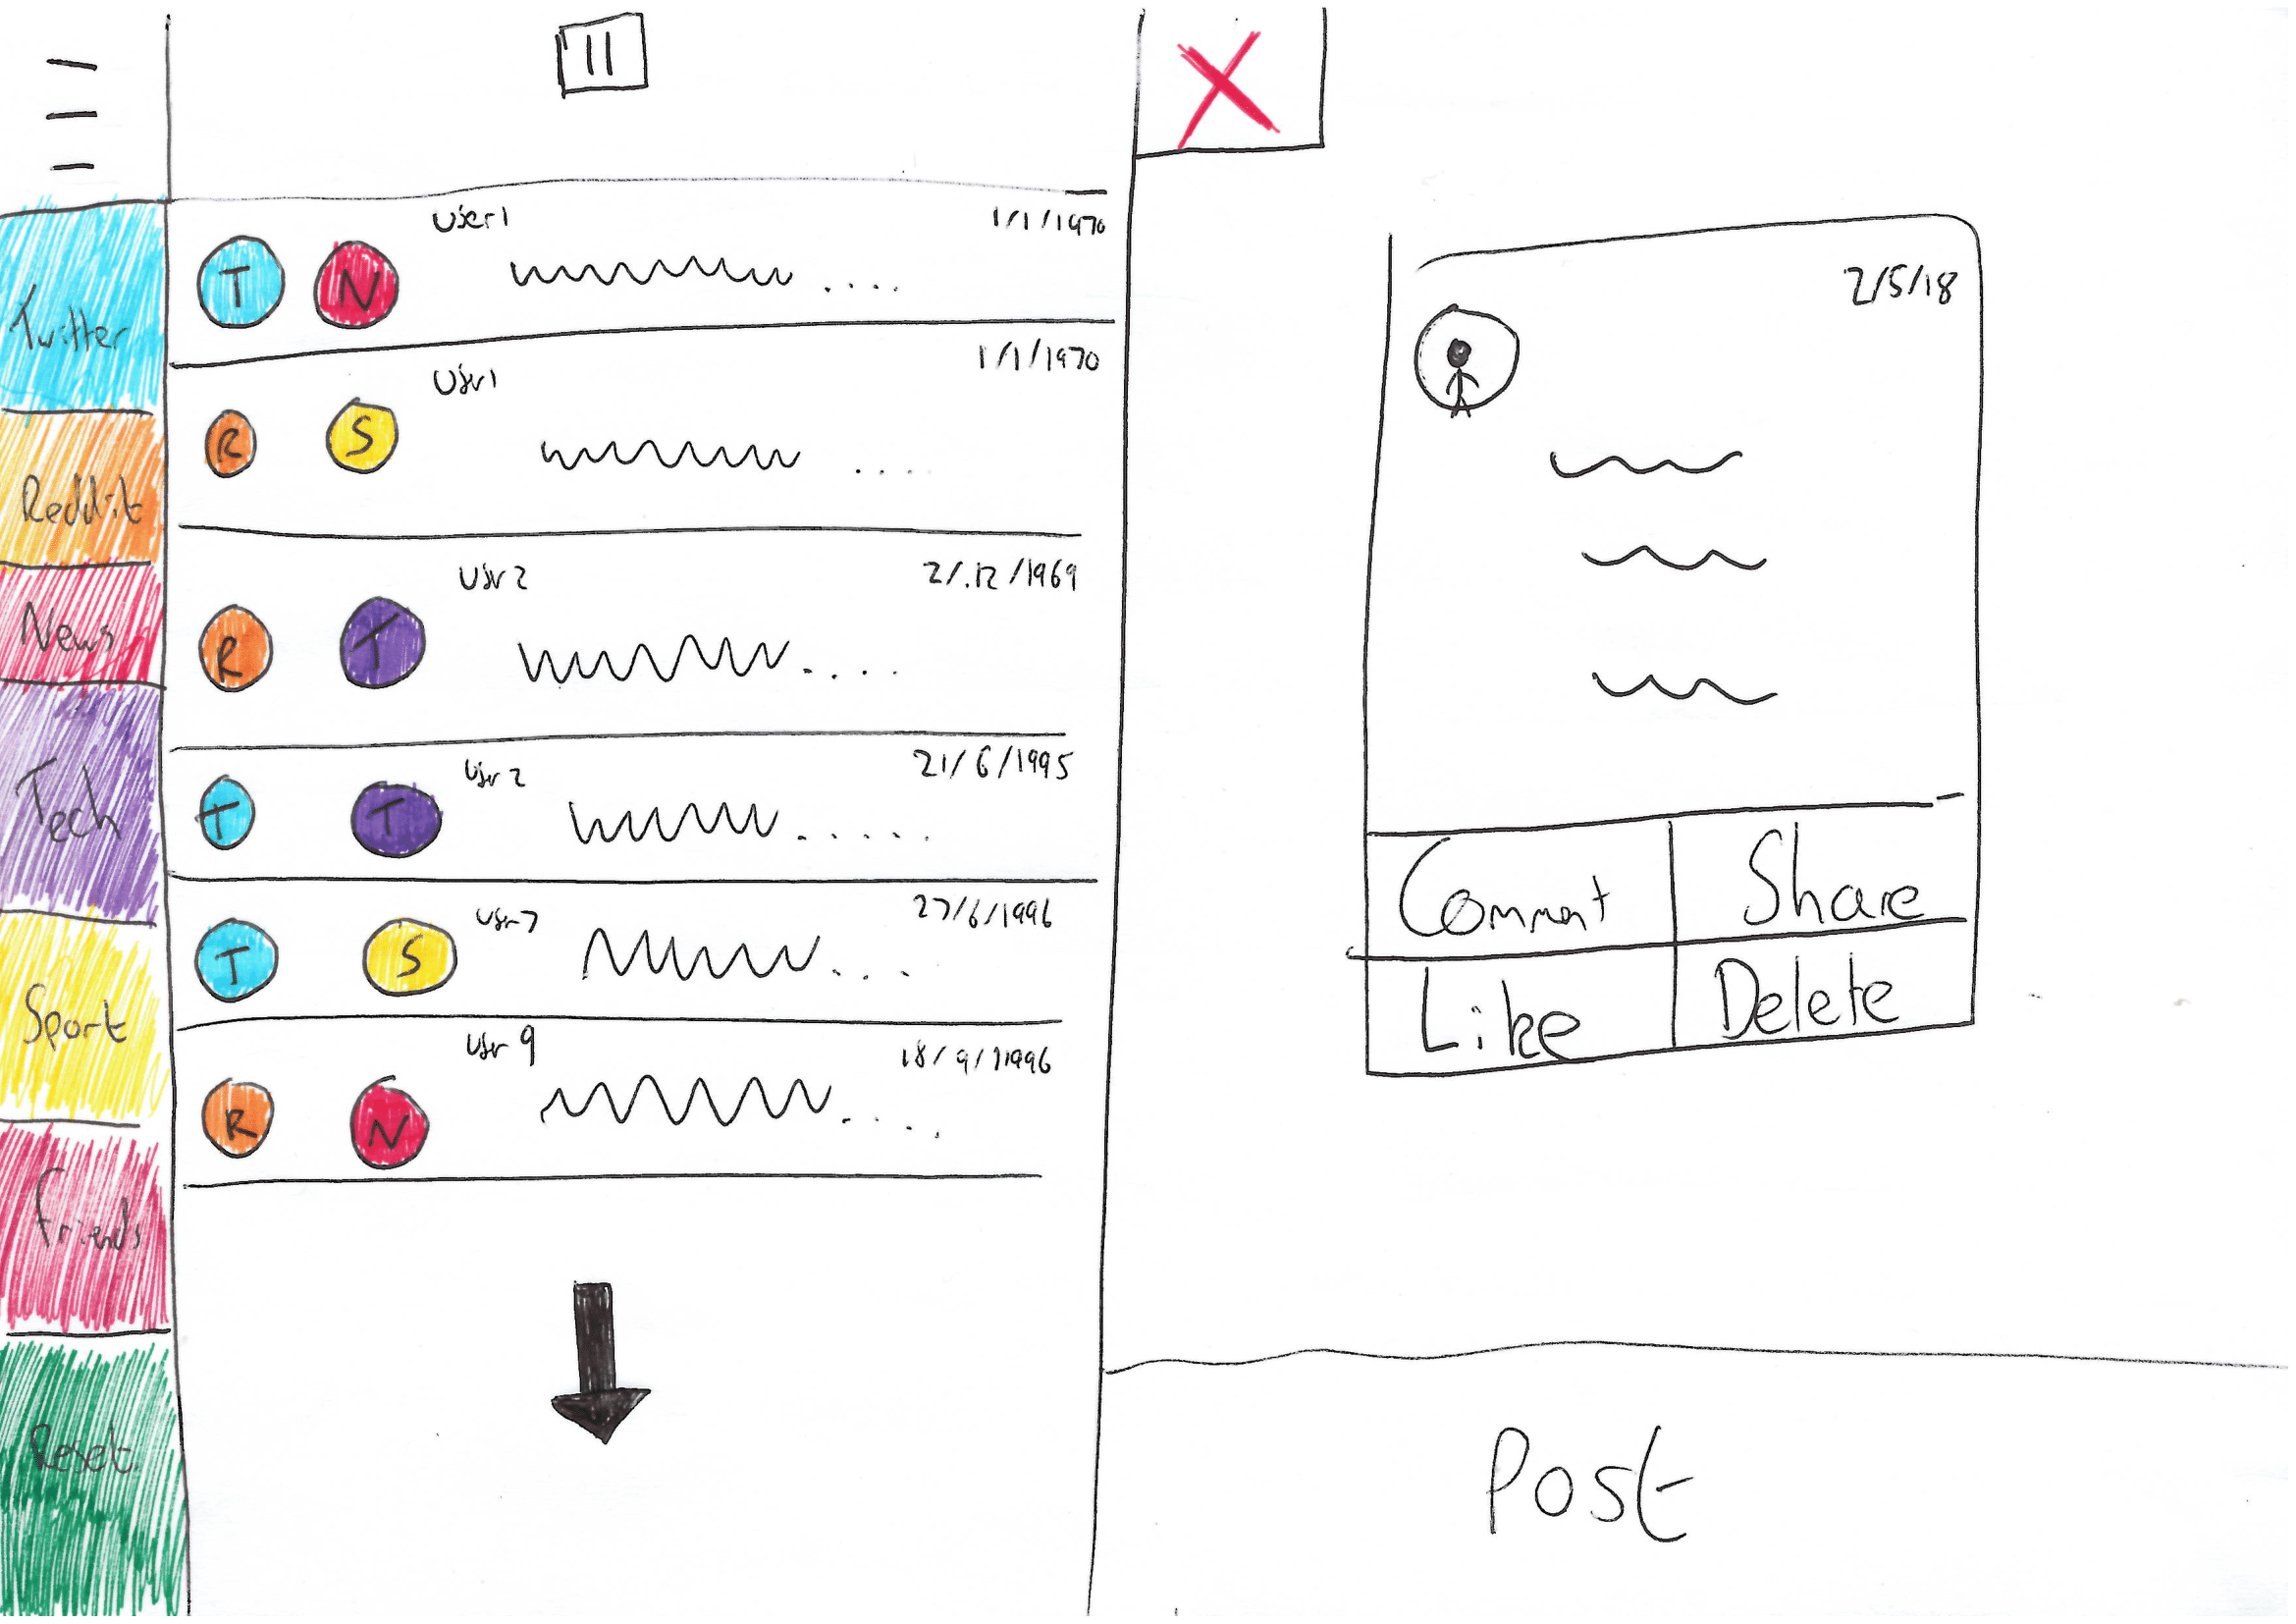 Twitter
Reddit
News
Tech
Sport
Friends
Reset
User1 1/1/1970
T N
Usr1 1/1/1970
R S
Usr2 2/.12/1969
R T
Usr2 21/6/1995
T T
Usr7 27/6/1996
T S
Usr9 18/9/1996
R N
2/5/18
Comment Share
Like Delete
Post